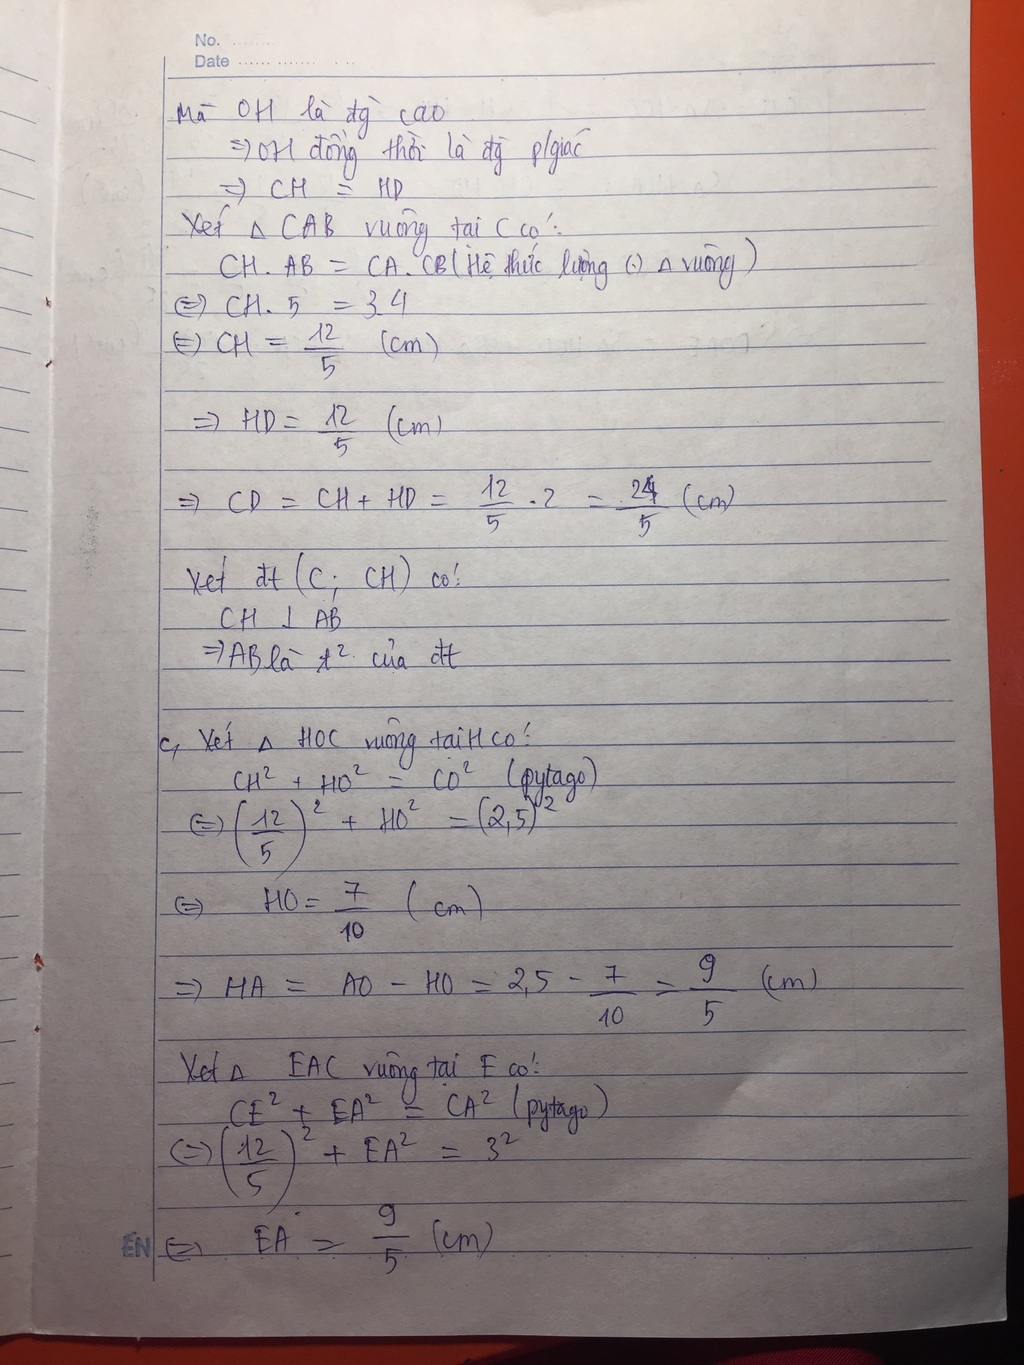 No. ........
Date ...... ....... . .
Mà OH là đg cao
=> OH đồng thời là đg p/giác
=> CH = HD
Xét Δ CAB vuông tại C có:
CH. AB = CA. CB (Hệ thức lượng (.) Δ vuông)
<=> CH. 5 = 3.4
<=> CH = 12/5 (cm)
=> HD = 12/5 (cm)
=> CD = CH + HD = 12/5 . 2 = 24/5 (cm)
Xét đt (C; CH) có:
CH ⊥ AB
=> AB là t² của đt
c, Xét Δ HOC vuông tại H có:
CH² + HO² = CO² (pytago)
<=> (12/5)² + HO² = (2,5)²
<=> HO = 7/10 (cm)
=> HA = AO - HO = 2,5 - 7/10 = 9/5 (cm)
Xét Δ EAC vuông tại E có:
CE² + EA² = CA² (pytago)
<=> (12/5)² + EA² = 3²
EN <=> EA = 9/5 (cm)